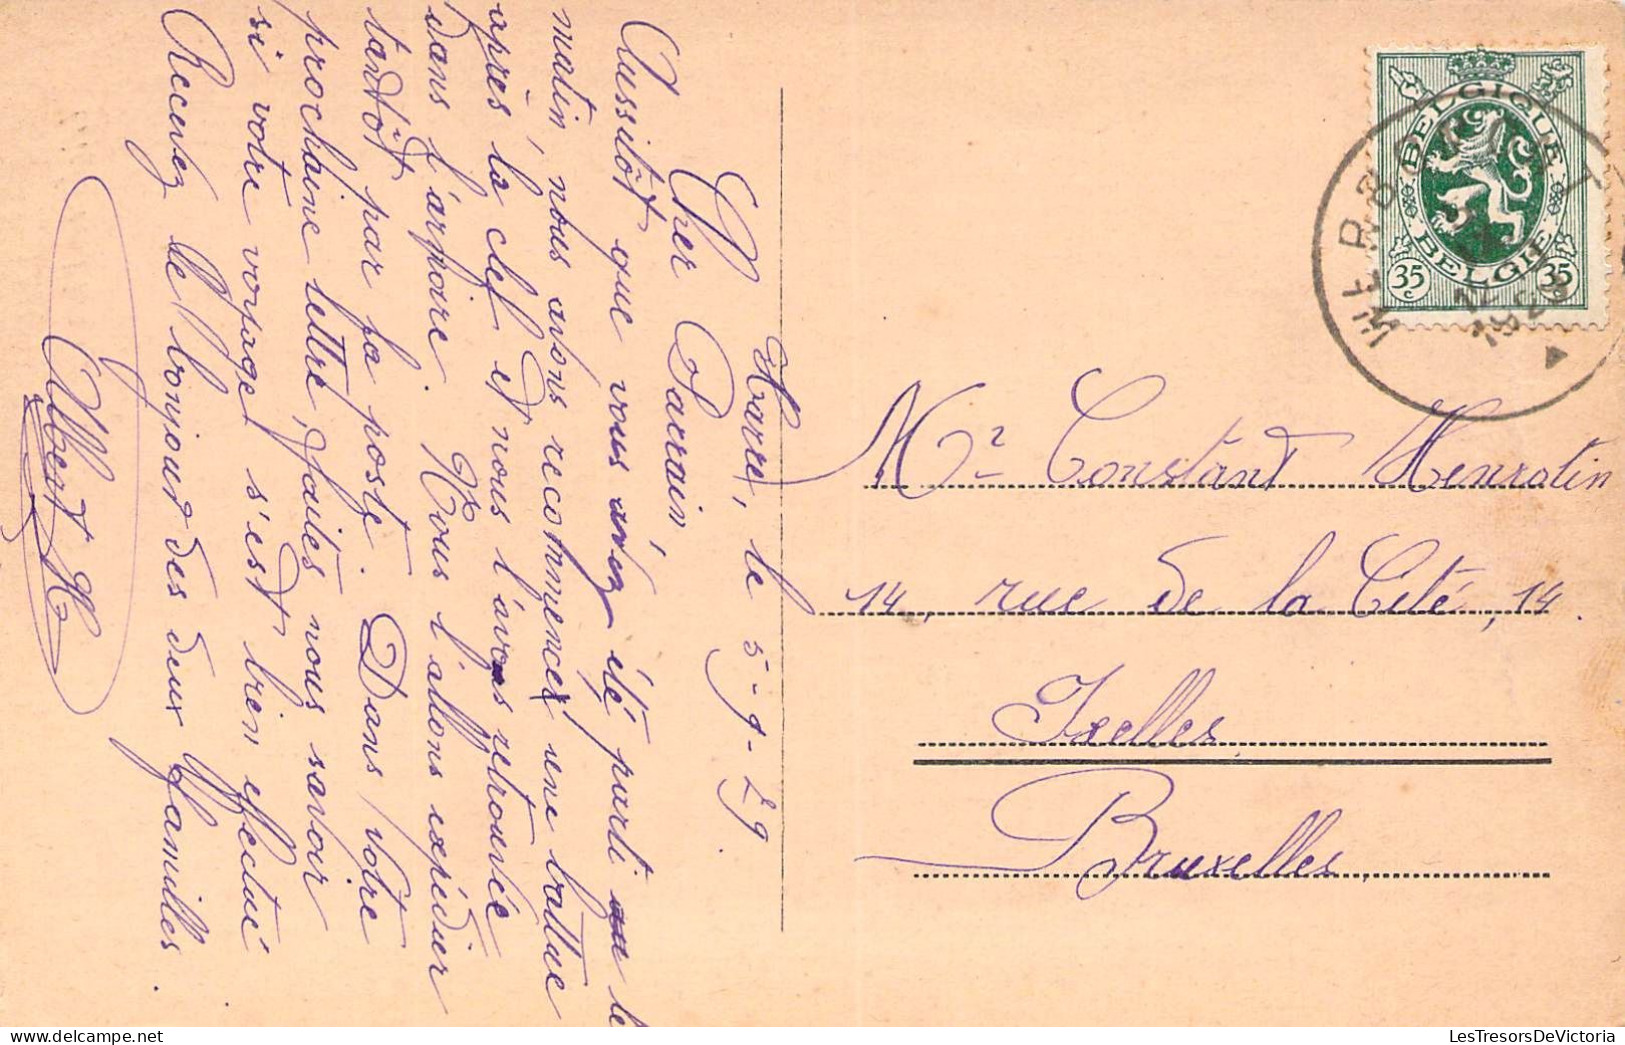 Harre, le 5-9-29.
Cher Parrain,
Aussitôt que vous avez été parti le
matin, nous avons recommencé une battue
après la clef et nous l'avons retrouvée
dans l'armoire. Nous l'allons expédier
tantôt par la poste. Dans votre
prochaine lettre, faites nous savoir
si votre voyage s'est bien effectué
Recevez le bonjour des deux familles.
Albert H
BELGIQUE
BELGIE
35 c
35
WERBOMONT
Mr Constant Henrotin
14, rue de la Cité, 14.
Ixelles
Bruxelles
LesTresorsDeVictoria.com